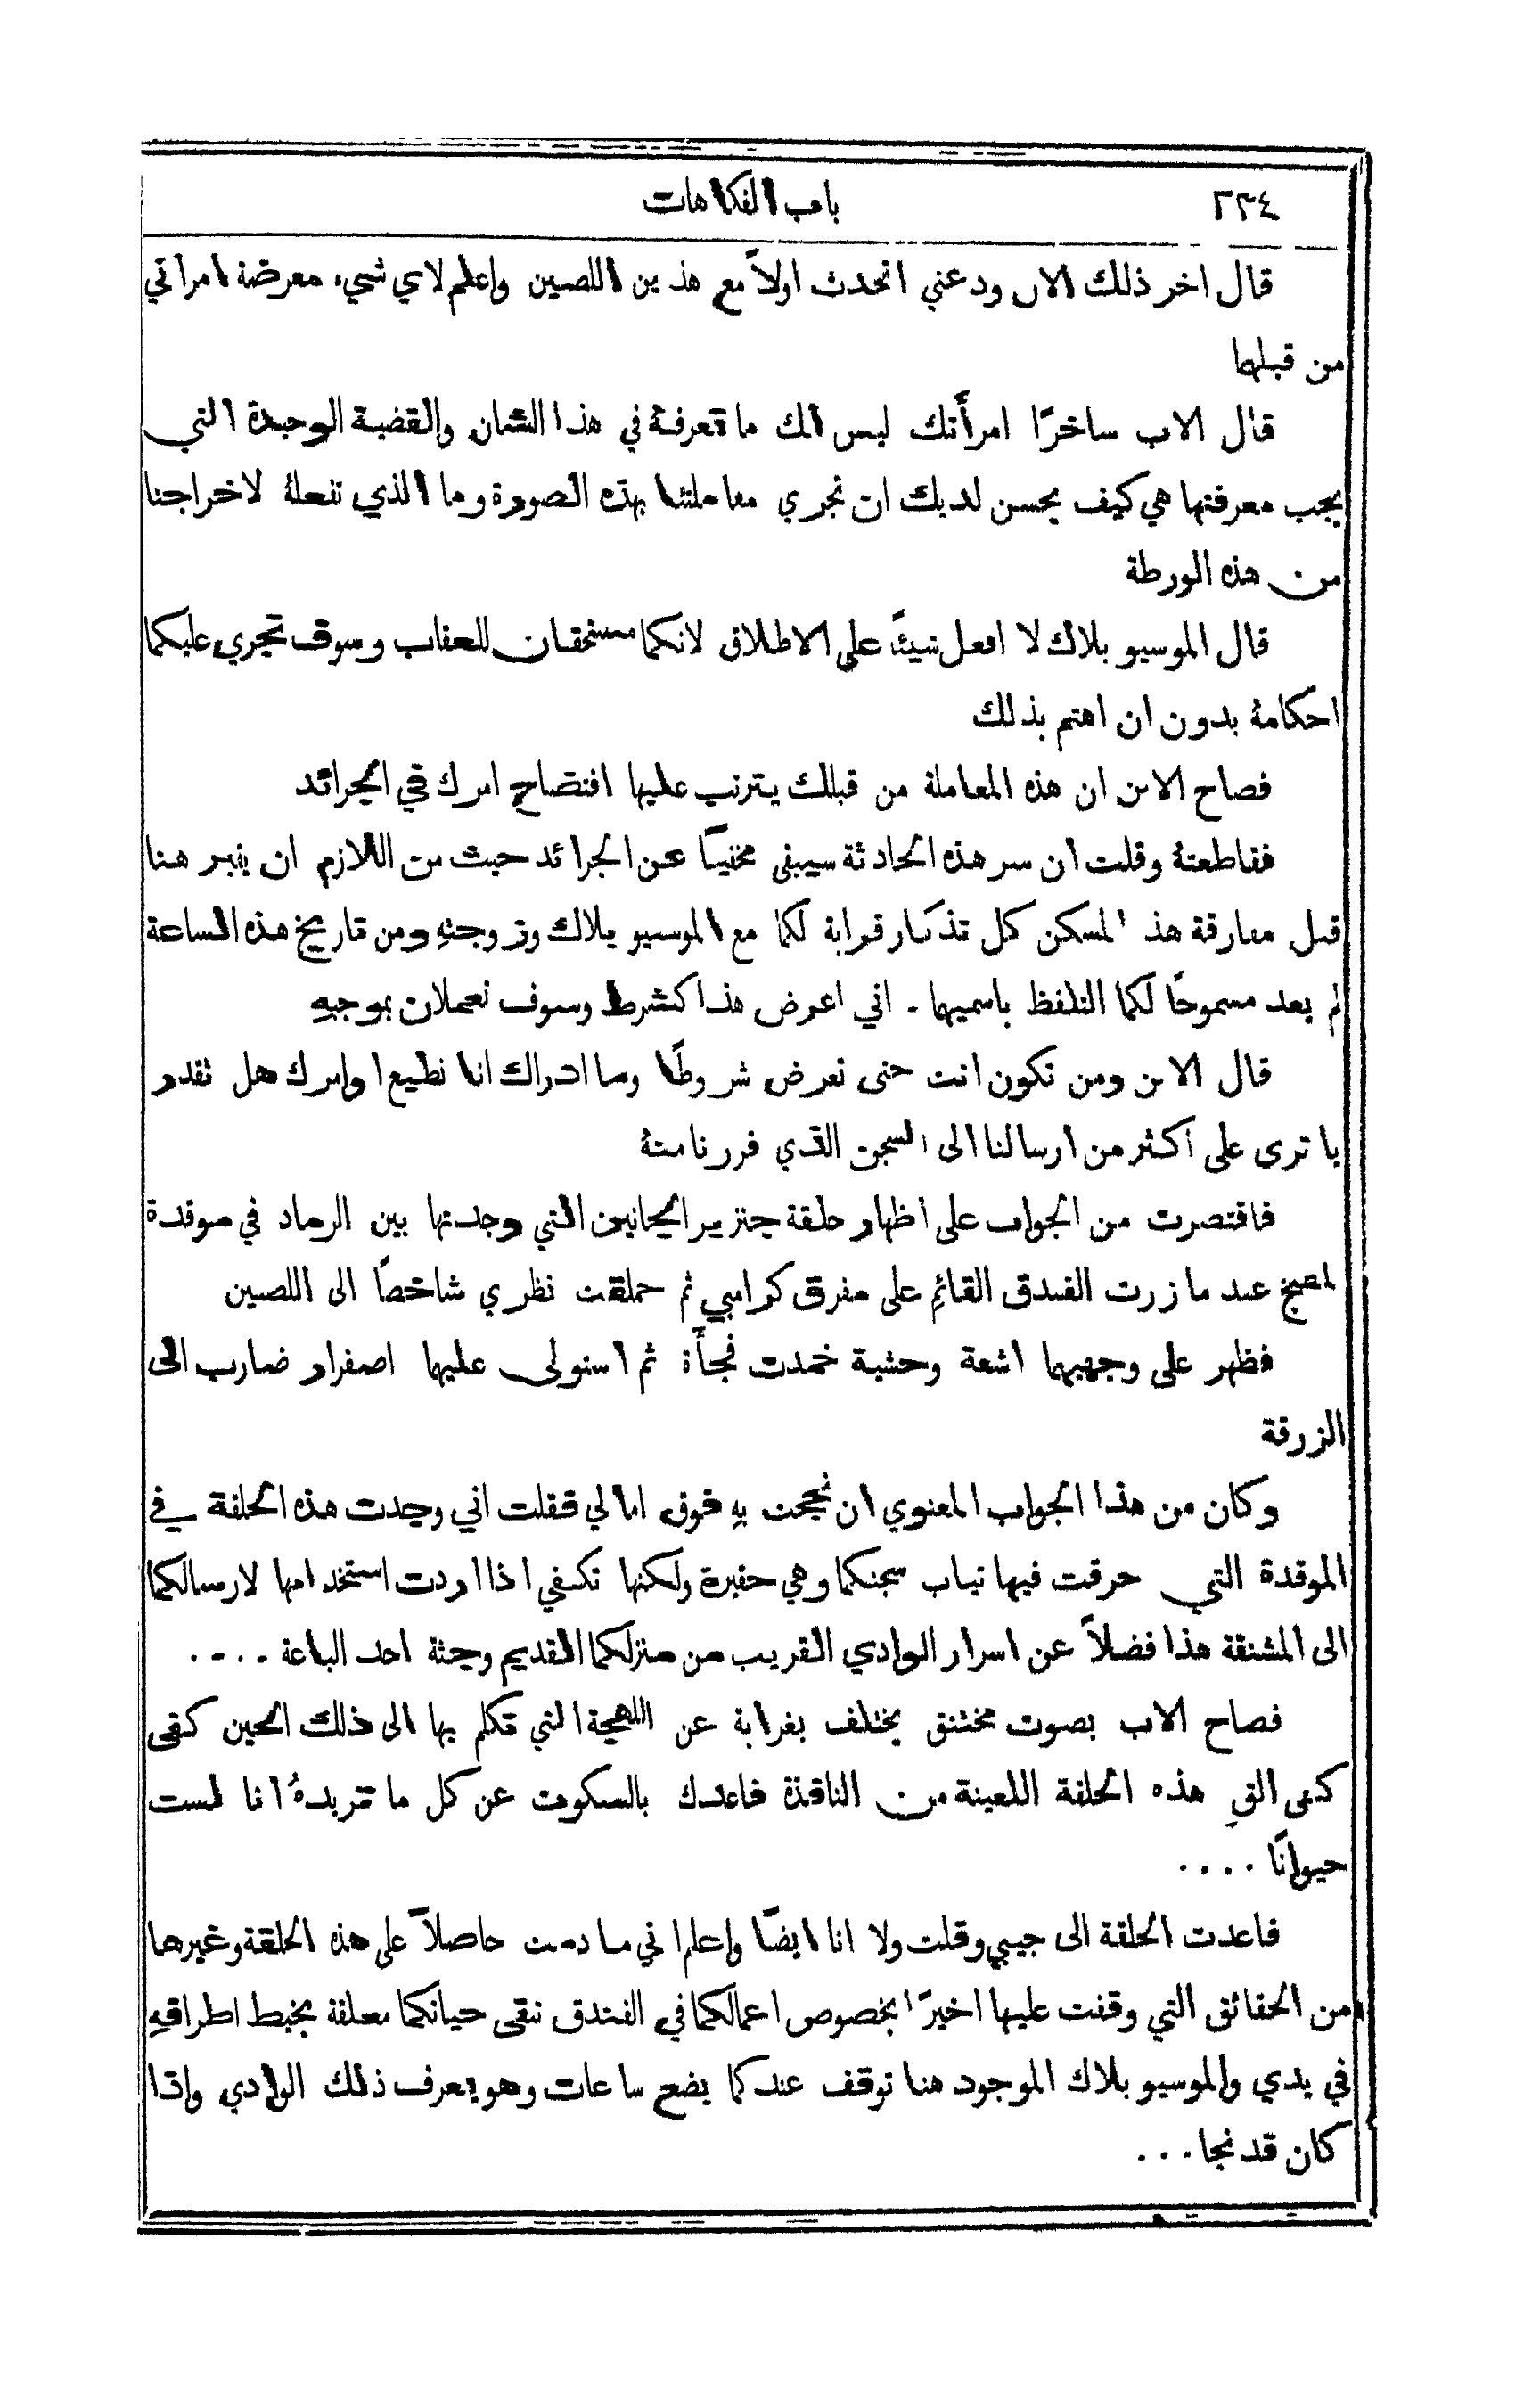 ٢٣٤ باب الفكاهات
قال اخر ذلك الان ودعني اتحدث اولاً مع هذين اللصين واعلم لاي شيء معرضة امرأتي
من قبلها
قال الاب ساخرًا امرأتك ليس لك ما تعرفهُ في هذا الشان والقضية الوحيدة التي
يجب معرفتها هي كيف يحسن لديك ان تجري معاملتنا بهذه الصورة وما الذي تفعلهُ لاخراجنا
من هذه الورطة
قال الموسيو بلاك لا افعل شيئًا على الاطلاق لانكما مستحقان للعقاب وسوف تجري عليكما
احكامهُ بدون ان اهتم بذلك
فصاح الابن ان هذه المعاملة من قبلك يترتب عليها افتضاح امرك في الجرائد
فقاطعتهُ وقلت ان سر هذه الحادثة سيبقى مخفيًا عن الجرائد حيث من اللازم ان يقبر هنا
قبل مفارقة هذا المسكن كل تذكار قرابة لكما مع الموسيو بلاك وزوجتهِ ومن تاريخ هذه الساعة
لم يعد مسموحًا لكما التلفظ باسميهما . اني اعرض هذا كشرط وسوف تعملان بموجبهِ
قال الابن ومن تكون انت حتى تعرض شروطًا وما ادراك انا نطيع اوامرك هل تقدر
يا ترى على اكثر من ارسالنا الى السجن الذي فررنا منهُ
فاقتصرت من الجواب على اظهار حلقة جنزير المجانين التي وجدتها بين الرماد في موقدة
المطبخ عند ما زرت الفندق القائمِ على مفرق كرامبي ثم حملقت نظري شاخصًا الى اللصين
فظهر على وجهيهما اشعة وحشية خمدت فجأة ثم استولى عليهما اصفرار ضارب الى
الزرقة
وكان من هذا الجواب المعنوي ان نجحت بهِ فوق امالي فقلت اني وجدت هذه الحلقة في
الموقدة التي حرقت فيها ثياب سجنكما وهي حقيرة ولكنها تكفي اذا اردت استخدامها لارسالكما
الى المشنقة هذا فضلاً عن اسرار الوادي القريب من منزلكما القديم وجثة احد الباعة ....
فصاح الاب بصوت مختنق يختلف بغرابة عن اللهجة التي تكلم بها الى ذلك الحين كفى
كفى القِ هذه الحلقة اللعينة من النافذة فاعدك بالسكوت عن كل ما تريدهُ انا لست
حيوانًا ....
فاعدت الحلقة الى جيبي وقلت ولا انا ايضًا واعلما اني ما دمت حاصلاً على هذه الحلقة وغيرها
من الحقائق التي وقفت عليها اخيرًا بخصوص اعمالكما في الفندق تبقى حياتكما معلقة بخيط اطرافهِ
في يدي والموسيو بلاك الموجود هنا توقف عندكما بضع ساعات وهو يعرف ذلك الوادي واذا
كان قد نجا ...